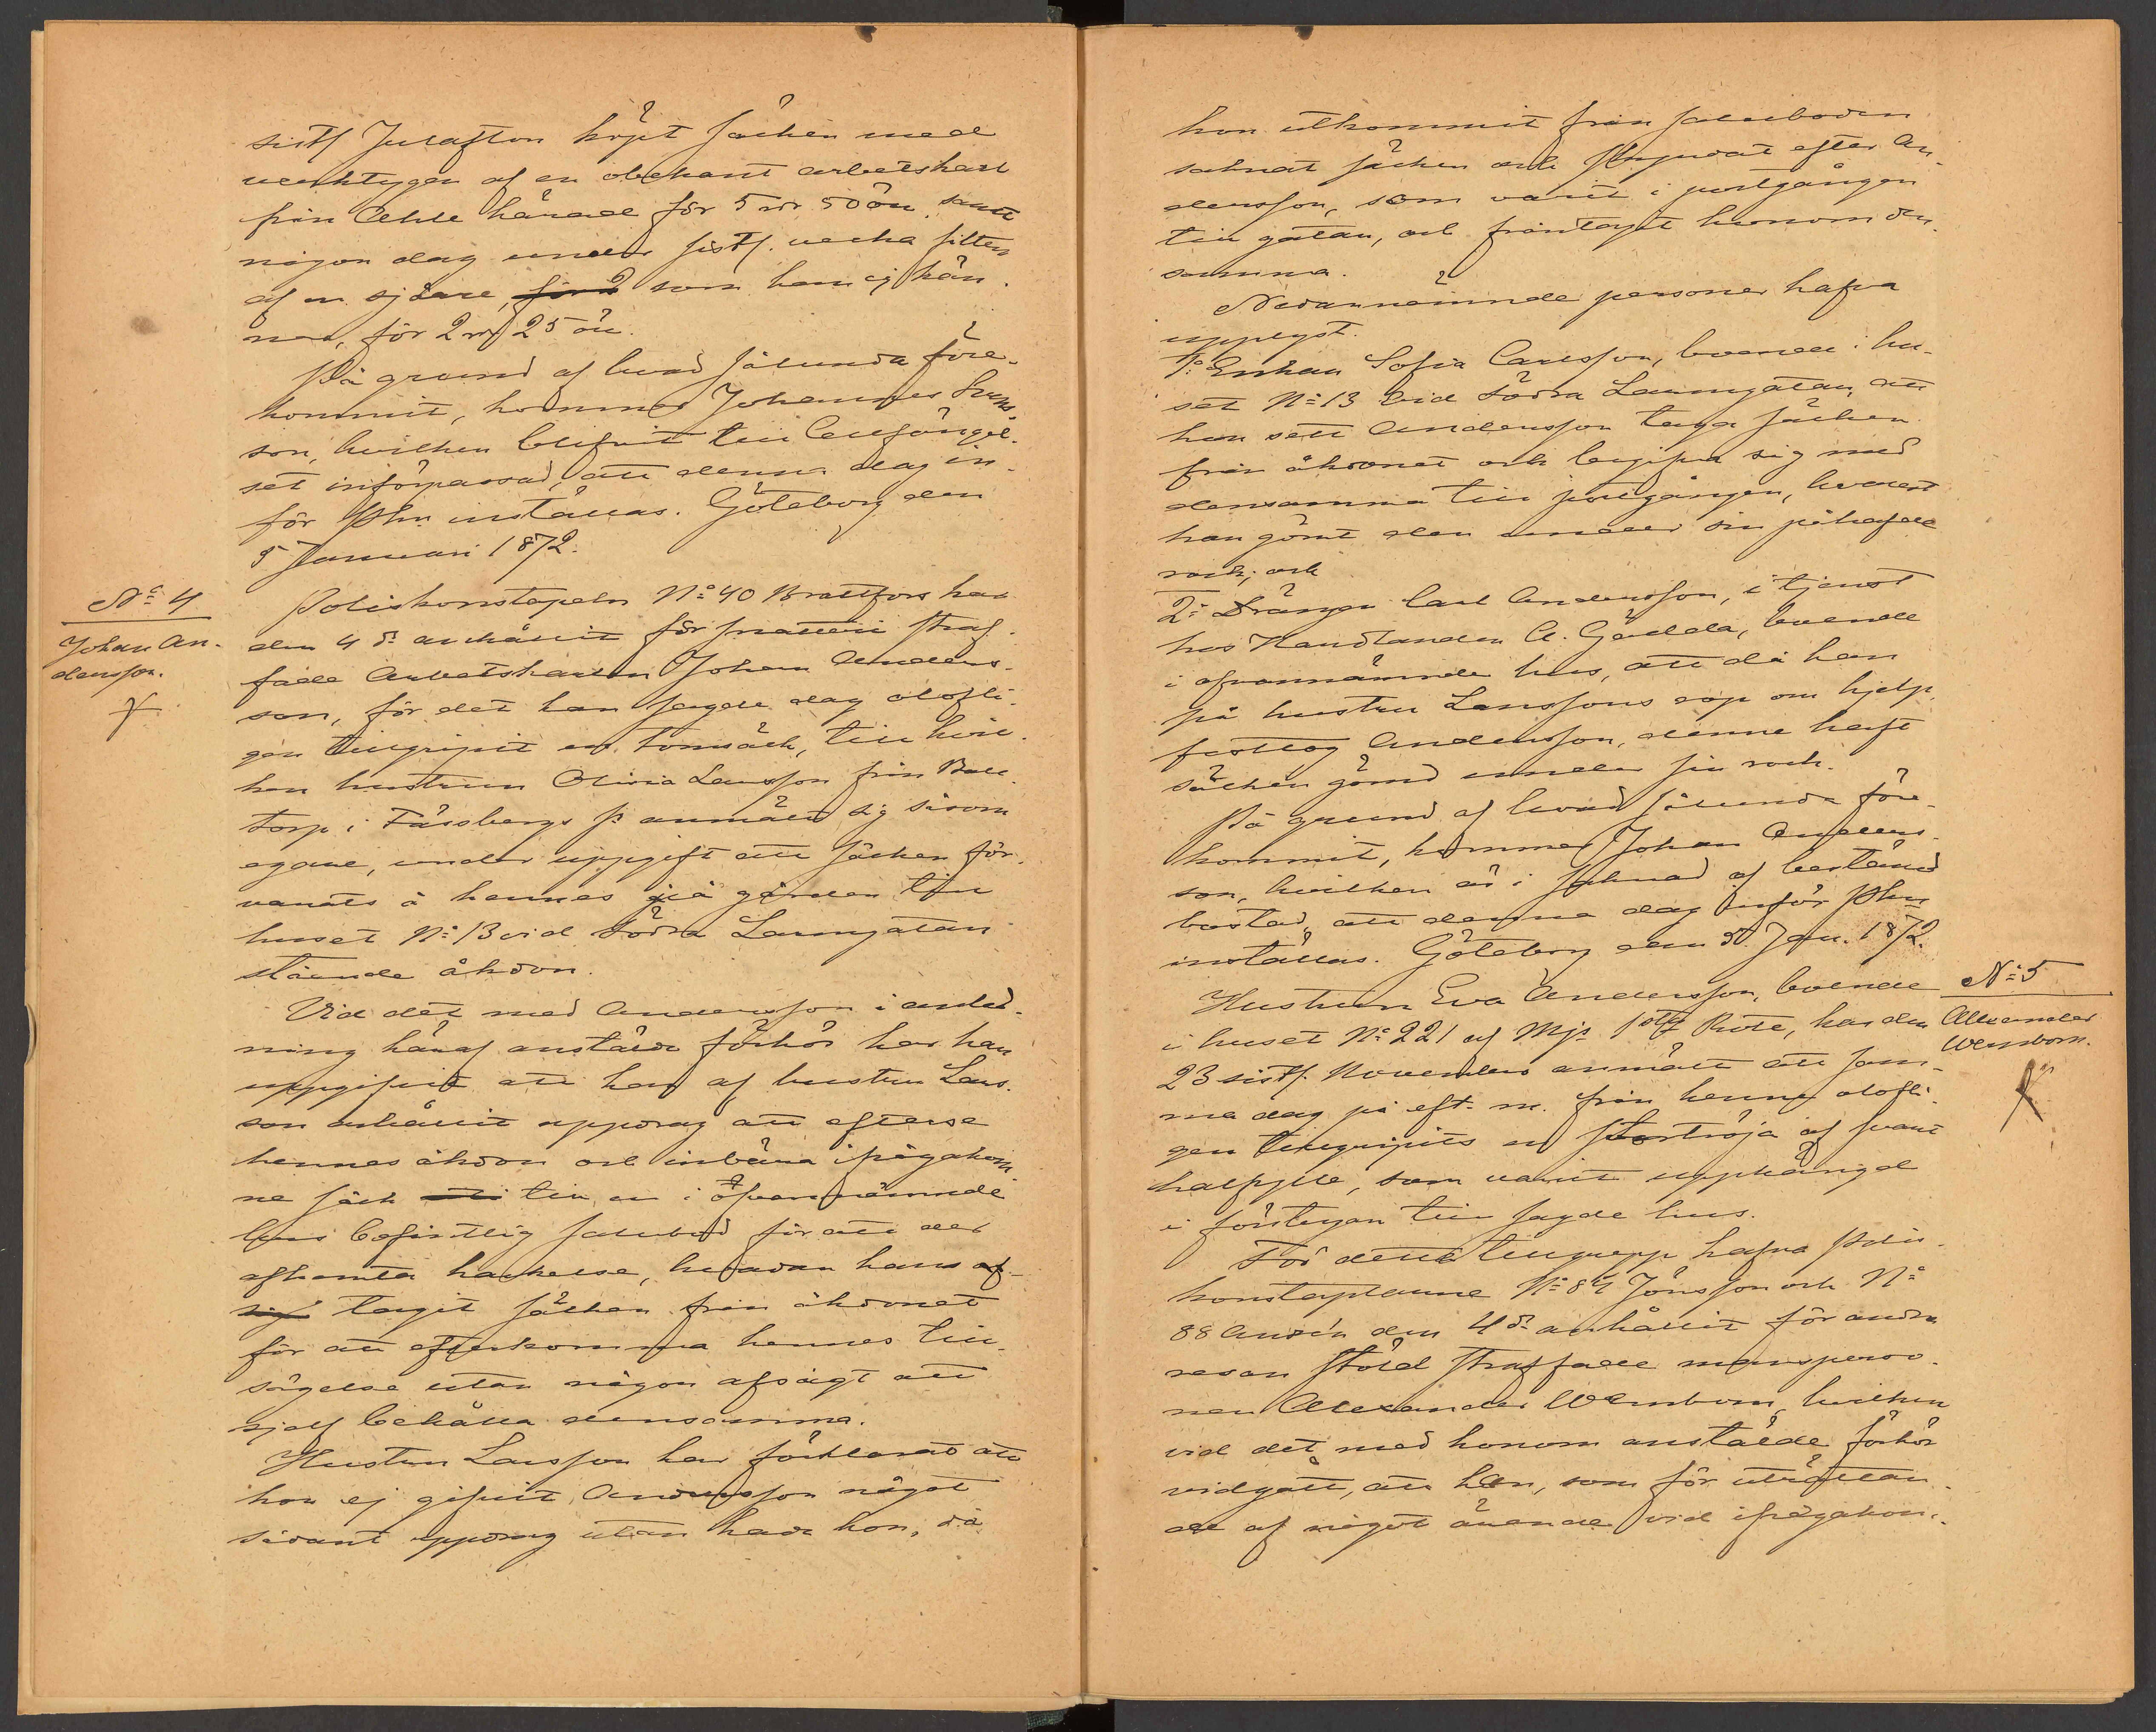 sistl Julafton köpt säcken med
verktygen af en obekant arbetskarl
från Ahle härad för 5 rdr 50 öre samt
någon dag under sistl. vecka filten
af en sjöare, som han ej kän-
ner, för 2 rdr 25 öre.
På grund af hvad sålunda före-
kommit, kommer Johannes
son, hvilken blifvit till Cellfängel-
set införpassad, att denna dag in-
för Plkn inställas. Göteborg den
5 Januari 1872.
No 4
Johan An-
dersson.
Poliskonstapeln No 40 Brattfors har
den 4 ds anhållit för snatteri straf-
fade Arbetskarlen Johan Anders-
son, för det han sagde dag olofli-
gen tillgripit en tomsäck, till hvil-
ken hustrun Olivia Larsson från Ball-
torp i Fässbergs s:n anmält sig såsom
egare, under uppgift att säcken för-
varats å hennes på gården till
huset No 13 vid Södra Larmgatan
stående åkdon.
Vid det med Andersson i anled-
ning häraf anstälda förhör har han
uppgifvit att han af hustru Lars-
son erhållit uppdrag att efterse
hennes åkdon och inbära ifrågakom-
ne säck till en i ofvannämnde
hus befintlig salubod för att der
afhemta hackelse, hvadan han
tagit säcken från åkdonet
för att efterkomma hennes till-
sägelse utan någon afsigt att
sjelf behålla densamma.
Hustru Larsson har förklarat att
hon ej gifvit Andersson något
sådant uppdrag utan hade hon, då
hon utkommit från saluboden
saknat säcken och skyndat efter An-
dersson, som varit i portgången
till gatan, och fråntagit honom den-
samma.
Nedannämnde personer hafva
upplyst.
1o Enkan Sofia Carlsson, boende i hu-
set No 13 vid Södra Larmgatan, att
hon sett Andersson taga säcken
från åkdonet och begifva sig med
densamma till portgången, hvarest
han gömt den under sin påhafde
rock; och
2o Drängen Carl Andersson, i tjenst
hos Handlanden A. Gädda, boende
i ofvannämnde hus, att då han
på hustru Larssons rop om hjelp
fasttog Andersson, denne haft
säcken gömd under sin rock.
På grund af hvad sålunda före-
kommit, kommer Johan Anders-
son, hvilken är i saknad af bestämd
bostad, att denna dag inför Plkn
inställas. Göteborg den 5 Jan. 1872.
No 5
Alexander
Wernbom.
Hustrun Eva Andersson, boende
i huset No 221 af Mjs 1sta Rote, har den
23 sistl. November anmält att sam-
ma dag på eft. m. från henne olofli-
gen tillgripits en stortröja af svart
halfylle, som varit upphängd
i förstugan till sagde hus.
För detta tillgrepp hafva Polis-
konstaplarne No 84 Jönsson och No
88 Andén den 4 ds anhållit för andra
resan stöld straffade mansperso-
nen Alexander Wernbom, hvilken
vid det med honom anstälde förhör
vidgått, att han, som för uträttan-
de af något ärende vid ifrågakom-